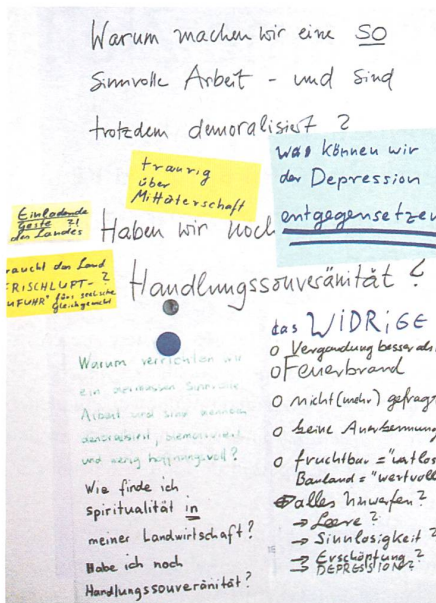 Warum machen wir eine SO
sinnvolle Arbeit - und sind
trotzdem demoralisiert?
traurig
über
Mittäterschaft
was können wir
der Depression
entgegensetzen
Einladende
Geste ?!
des Landes
Haben wir noch
Handlungssouveränität?
raucht das Land
FRISCHLUFT-?
UFUHR" fürs seelische
Gleichgewicht
das WiDRiGE
o Vergandung besser als
o Feuerbrand
o nicht (mehr) gefragt
o keine Anerkennung
o fruchtbar = "wertlos
Bauland = "wertvoll
alles hinwerfen?
→ Leere?
→ Sinnlosigkeit?
→ Erschöpfung?
→ DEPRESSION?
Warum verrichten wir
ein sinnvolle
Arbeit und sind
demoralisiert,
und wenig hoffnungsvoll?
Wie finde ich
spiritualität in
meiner Landwirtschaft?
Habe ich noch
Handlungssouveränität?